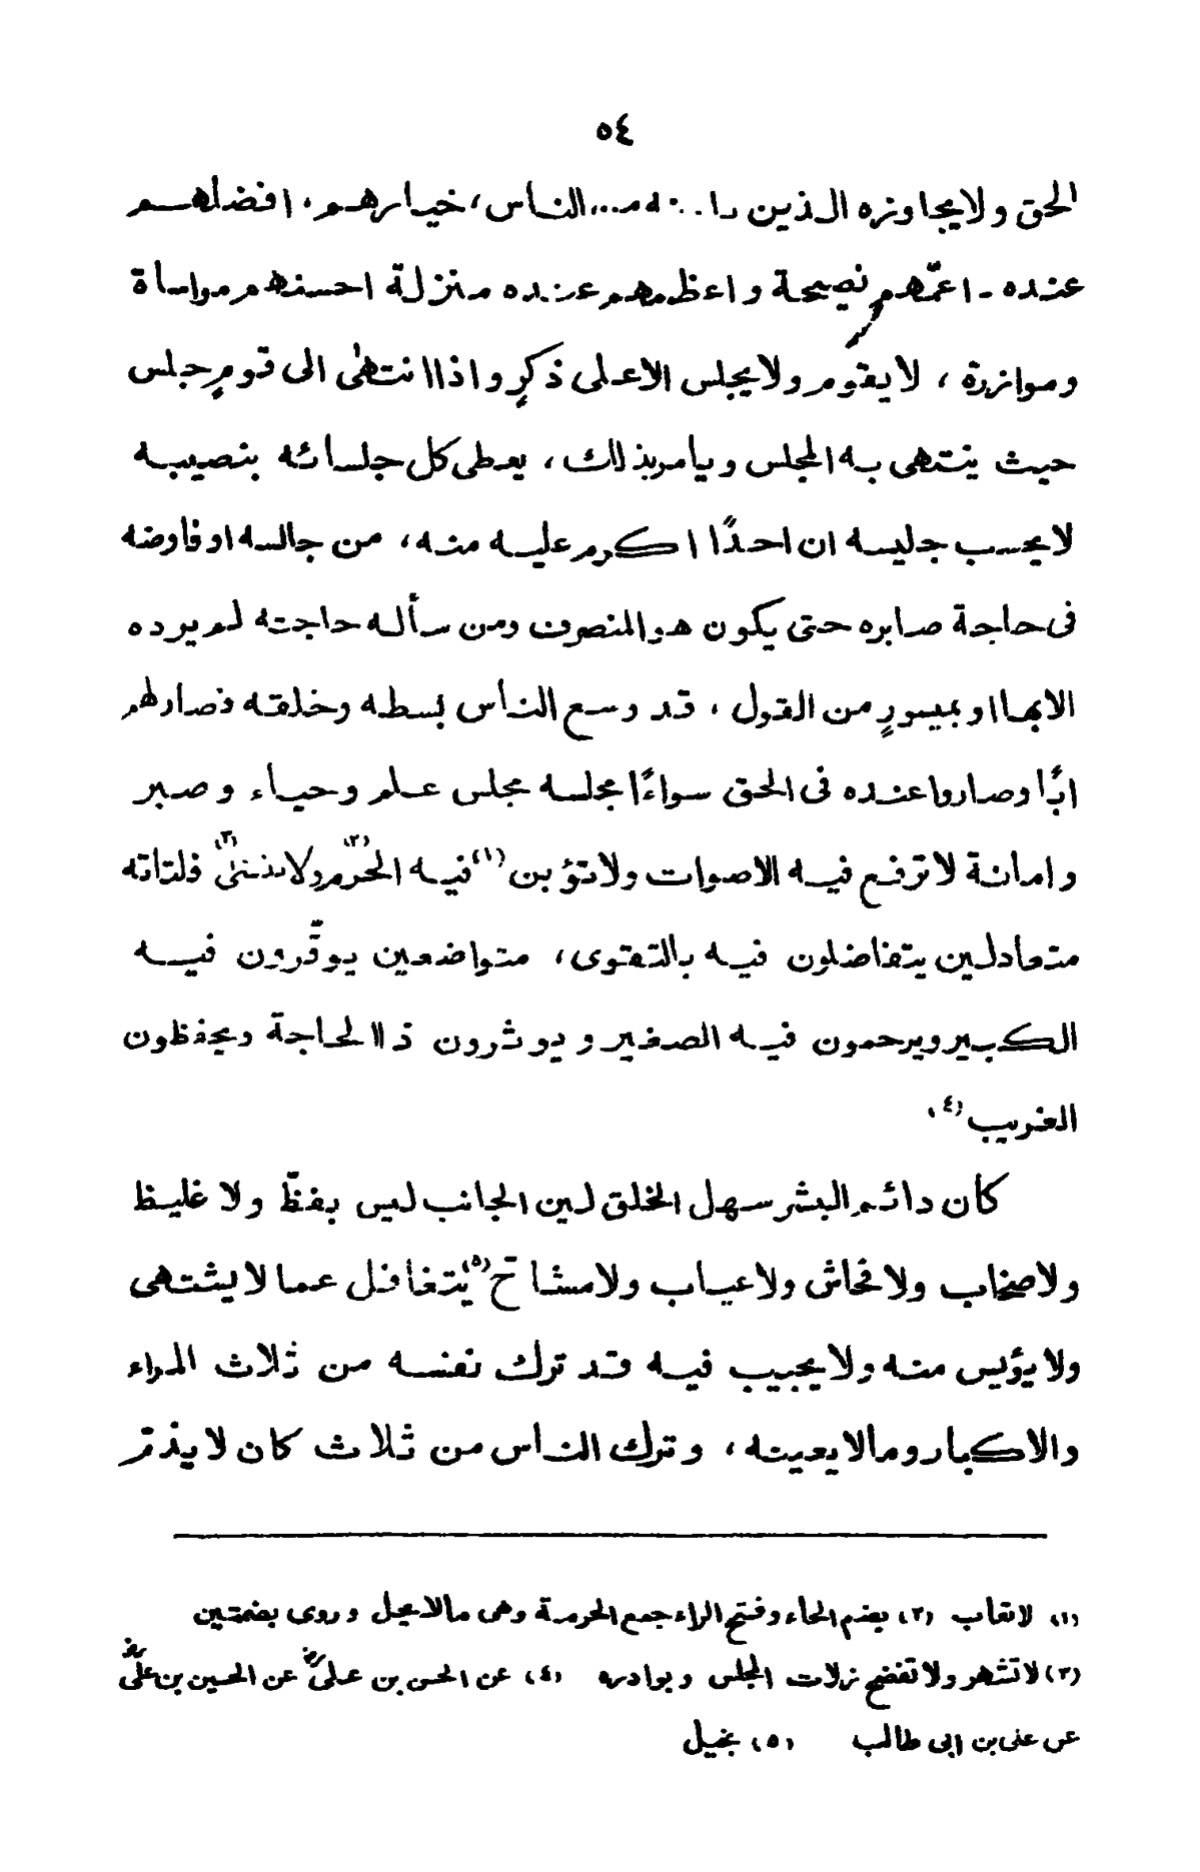 ٥٤
الحق ولا يجاوزه الذين الناس، خيارهم، افضلهم
عنده ـ اعمّهم نصيحة واعظمهم عنده منزلة احسنهم مواساة
وموازرة، لا يقوم ولا يجلس الا على ذكرٍ واذا انتهىٰ الى قومٍ جلس
حيث ينتهى به المجلس ويأمر بذلك، يعطى كل جلسائه بنصيبه
لا يحسب جليسه ان احدًا اكرم عليه منه، من جالسه او فاوضه
فى حاجة صابره حتى يكون هو المنصرف ومن سأله حاجته لم يرده
الا بها او بميسورٍ من القول، قد وسع الناس بسطه وخلقه فصار لهم
ابًا وصاروا عنده فى الحق سواءًا مجلسه مجلس علم وحياء وصبر
وامانة لا ترفع فيه الاصوات ولا تؤبن (١) فيه الحُرَم (٢) ولا تنثىٰ (٣) فلتاته
متعادلين يتفاضلون فيه بالتقوى، متواضعين يوقّرون فيه
الكبير ويرحمون فيه الصغير ويوثرون ذا الحاجة ويحفظون
الغريب (٤)،
كان دائم البشر سهل الخلق لين الجانب ليس بفظّ ولا غليظ
ولا صخاب ولا فحاش ولا عياب ولا مشاحّ (٥) يتغافل عما لا يشتهى
ولا يؤيس منه ولا يجيب فيه قد ترك نفسه من ثلاث المراء
والاكبار ومالا يعينه، وترك الناس من ثلاث كان لا يذمّ
(١) لا تعاب (٢) بضم الحاء وفتح الراء جمع الحرمة وهى مالا يحل وروى بضمتين
(٣) لا تشهر ولا تفضح زلات المجلس وبوادره (٤) عن الحسن بن علىؓ عن الحسين بن علىؓ
عن على بن ابى طالب (٥) بخيل